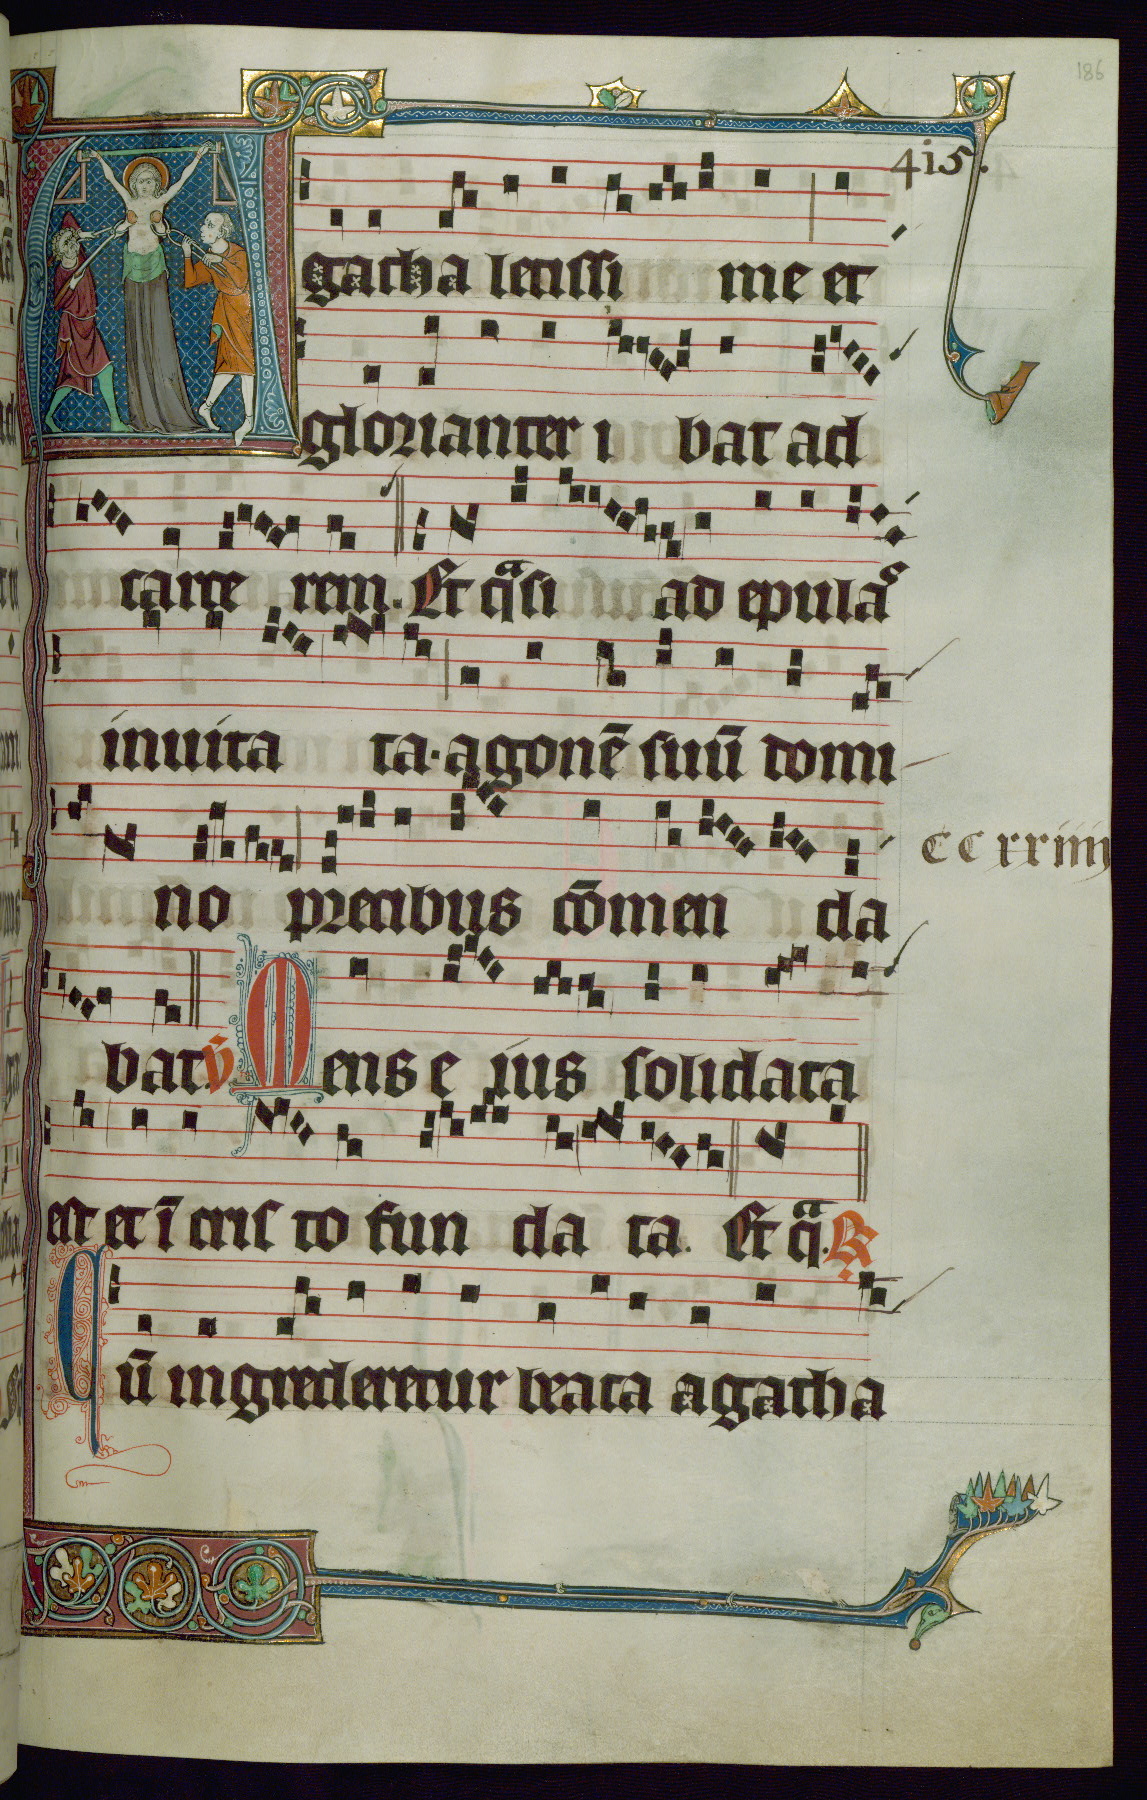 186
415.
Agatha letissi me et
glorianter i bat ad
carce rem. Et q̃si ad epulas
inuita ta. agonē suū domi
no precibus cōmen da
ccxxiiij
bat. ℣ Mens e ius solidata
est et ī cris to fun da ta. Et q̃. ℟
Qū ingrederetur beata agatha